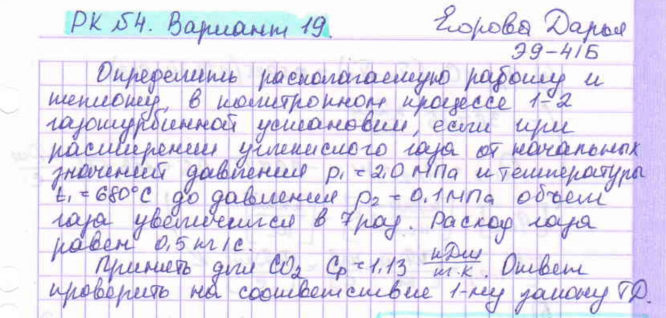 РК №4. Вариант 19.
Егорова Дарья
Э9-41Б
Определить располагаемую работу и
теплоту, в политропном процессе 1-2
газотурбинной установки, если при
расширении углекислого газа от начальных
значений давления p₁ = 2,0 МПа и температуры
t₁ = 680°C до давления p₂ = 0,1 МПа объем
газа увеличился в 7 раз. Расход газа
равен 0,5 кг/с.
Принять для CO₂ Cp = 1,13 кДж/кг·К. Ответ
проверить на соответствие 1-му закону ТД.